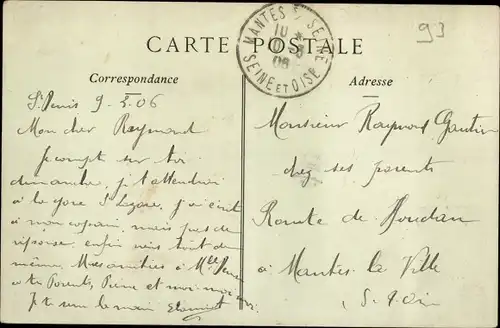 93
CARTE POSTALE
MANTES S/ SEINE
SEINE ET OISE
Correspondance
Adresse
St Denis 9-5.06
Mon cher Raymond
Je compte sur toi
dimanche, je t'attendrai
à la gare St Lazare, j'ai écrit
à mon copain, mais pas de
réponse. enfin viens tout de
même. Mes amitiés à Mlle
à tes Parents, Pierre et moi
Je te serre la main
Monsieur Raymond Gautier
chez ses parents
Route de Houdan
à Mantes la Ville
S. & Oise